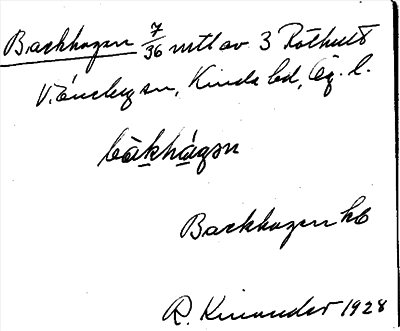 Backhagen 7/36 mtl av 3 Röthult
V. Eneby sn, Kinda hd, Ög. l.
bàkhágən
Backhagen hb
R. Kinander 1928